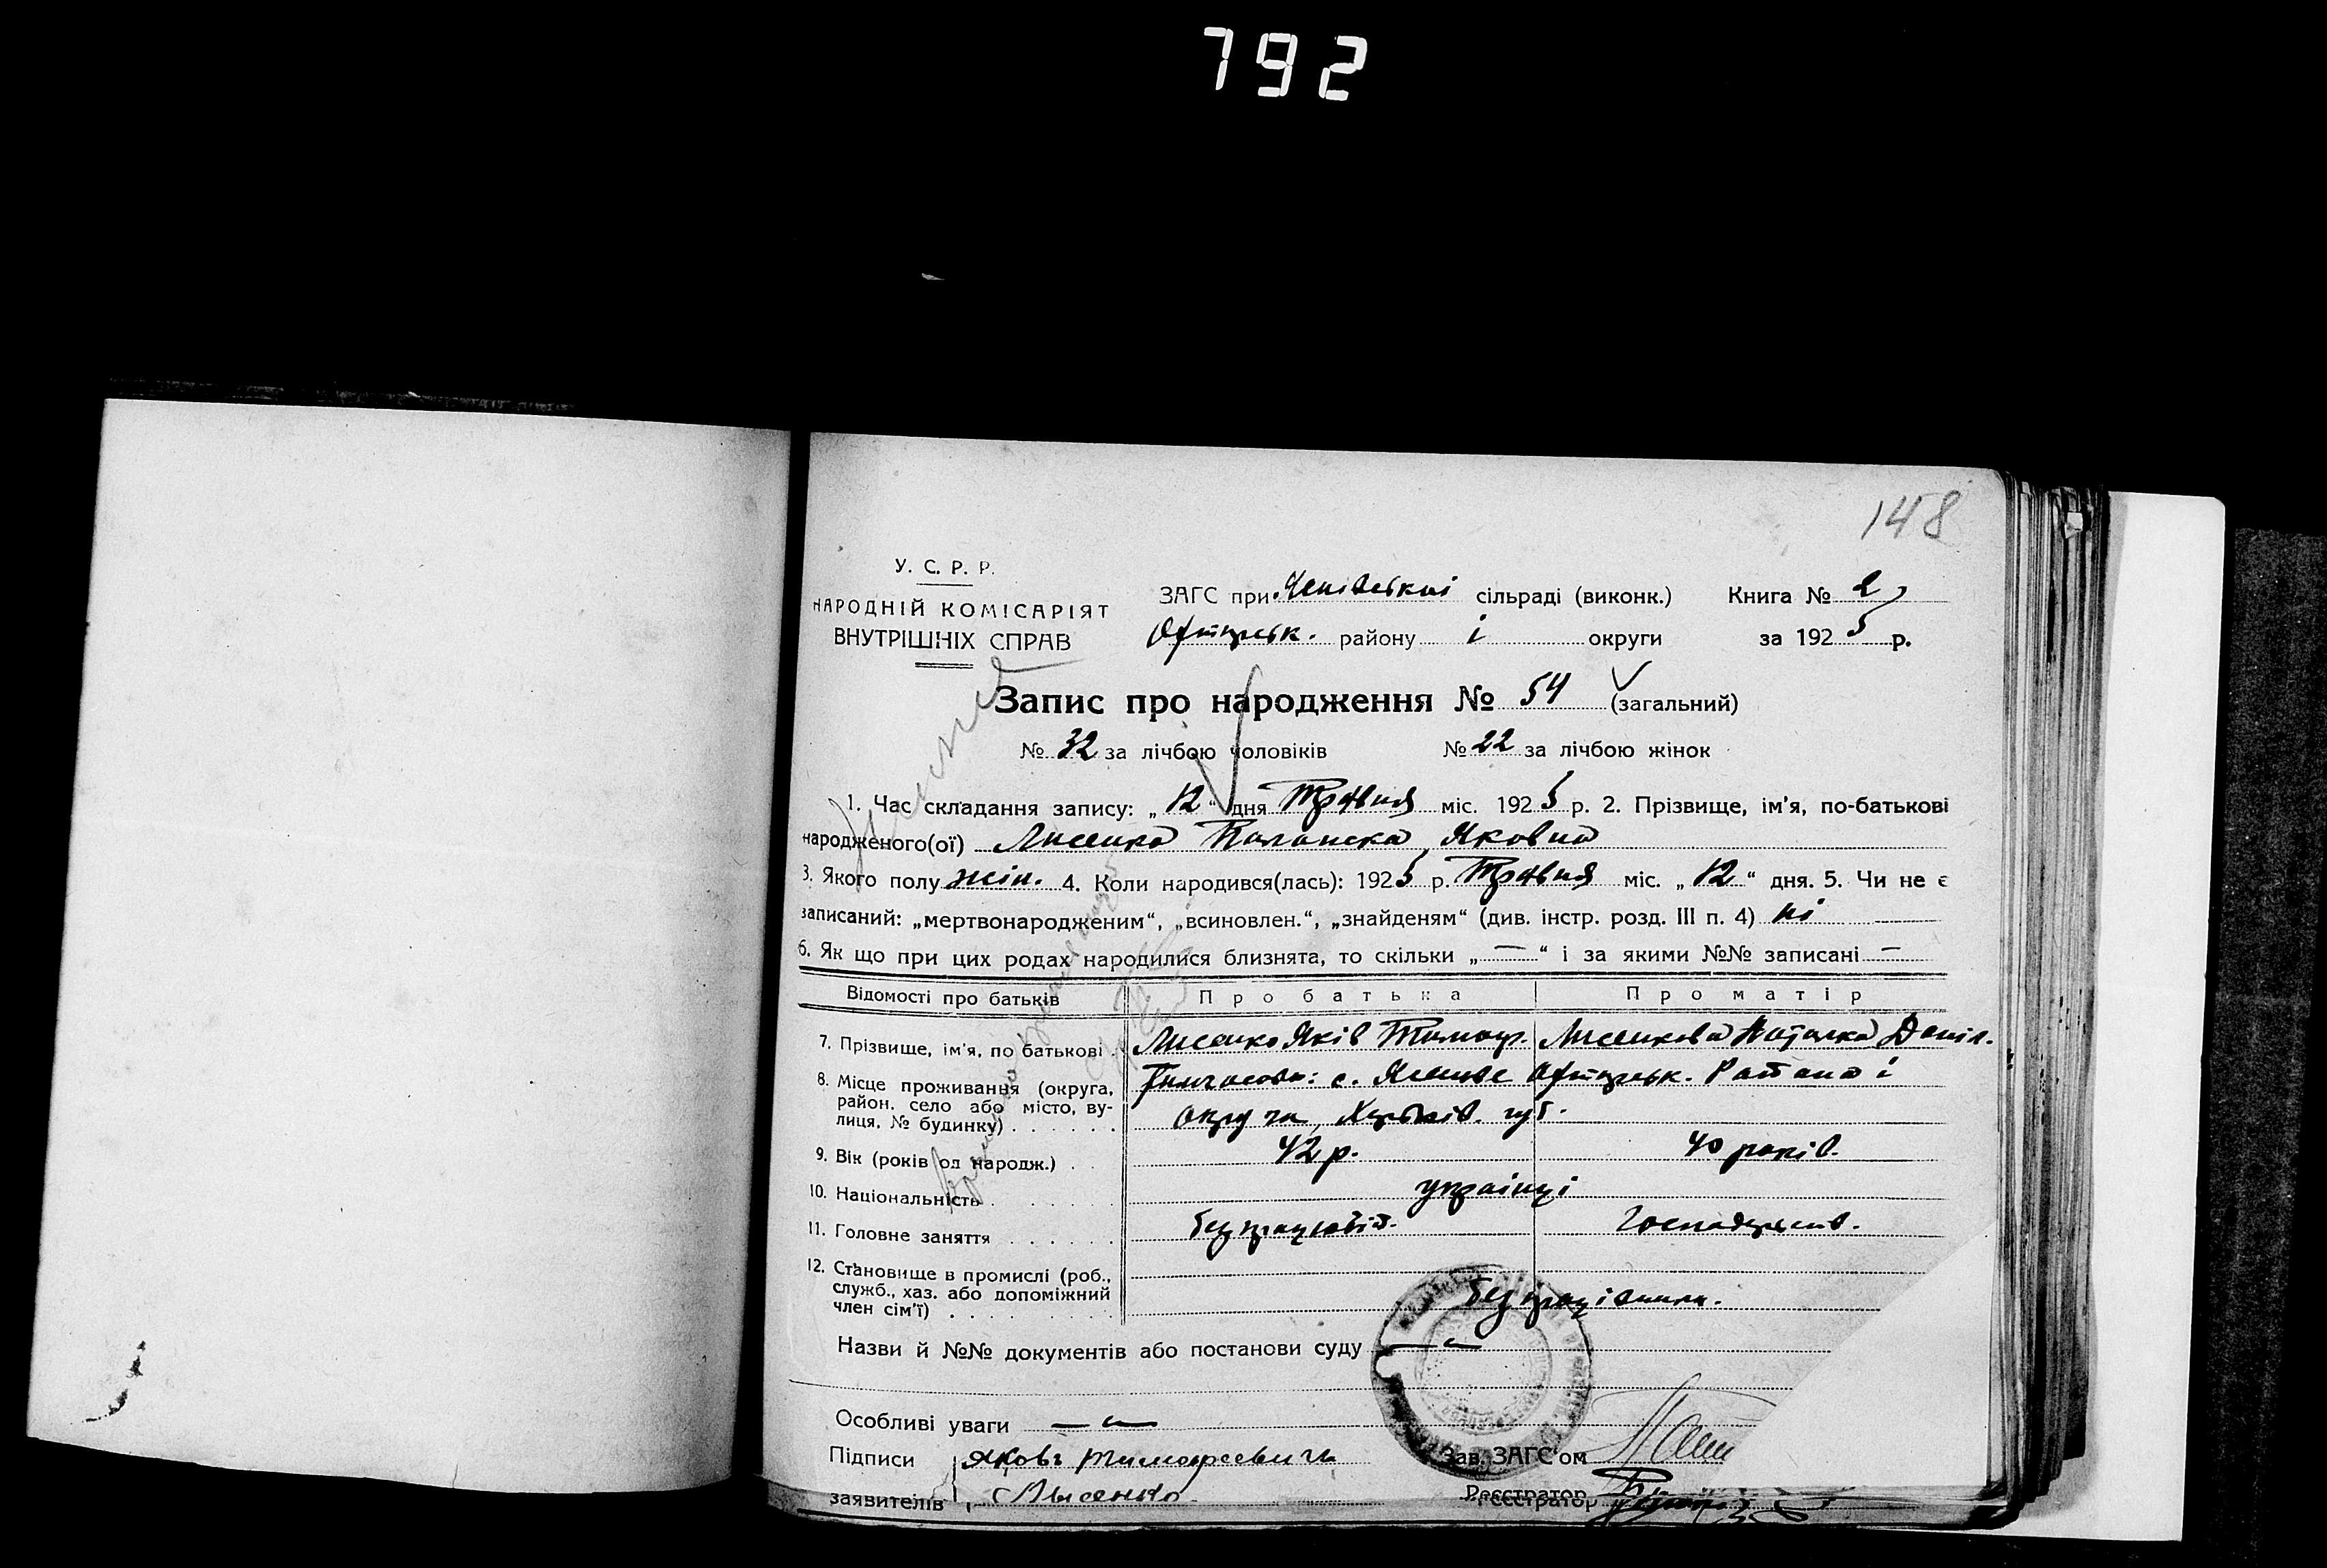 792
148
У. С. Р. Р.
НАРОДНІЙ КОМІСАРІЯТ
ВНУТРІШНІХ СПРАВ
ЗАГС при сільраді (виконк.) Книга № 2
Охтирськ. району і округи за 1925 р.
Запис про народження № 54 (загальний)
№ 32 за лічбою чоловіків № 22 за лічбою жінок
1. Час складання запису: „12“ дня Травня міс. 1925 р. 2. Прізвище, ім'я, по-батькові
народженого(ої) Лисенко Яковна
3. Якого полу жін. 4. Коли народився(лась): 1925 р. Травня міс. „12“ дня. 5. Чи не є
записаний: „мертвонародженим“, „всиновлен.“, „знайденям“ (див. інстр. розд. III п. 4) ні
6. Як що при цих родах народилися близнята, то скільки „—“ і за якими №№ записані —
Відомості про батьків Про батька Про матір
7. Прізвище, ім'я, по батькові . Лисенко Яків Тимоф. Лисенкова Наталка Даніл.
8. Місце проживання (округа, район, село або місто, вулиця, № будинку) . . . . . . с. Ясенове Охтирськ. Района і
округи, Харьків. губ.
9. Вік (років од народж.) . 42 р. 40 років.
10. Національність . . . . . українці
11. Головне заняття . . . . . . Господарств.
12. Становище в промислі (роб.,
служб., хаз. або допоміжний
член сім'ї) . . . . . . . . .
Назви й №№ документів або постанови суду — „ —
Особливі уваги — „ —
Підписи Яковъ Тимофеевичъ Зав. ЗАГС'ом
заявителів Лысенко Реєстратор